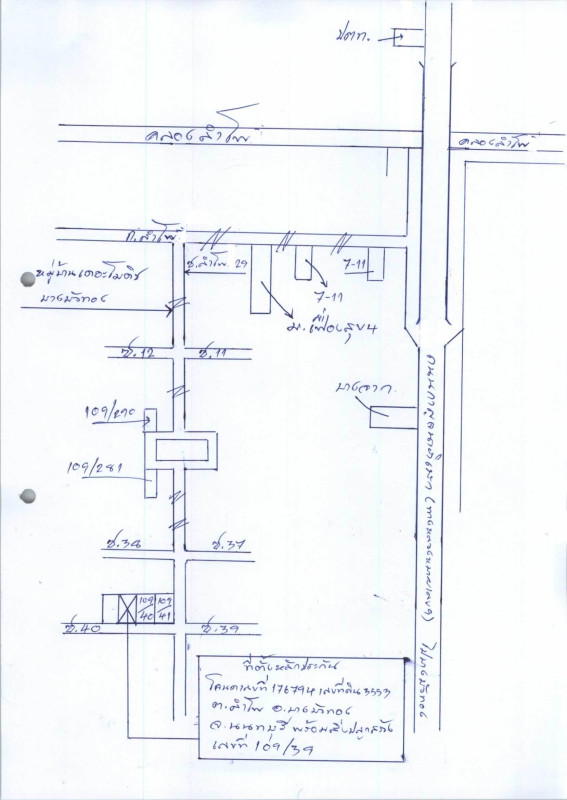 ปตท.
คลองลำโพ
คลองลำโพ
ถ.ลำโพ
ซ.ลำโพ 29
7-11
7-11
ม.เฟื่องสุข 4
หมู่บ้านเดอะโมดิช
บางบัวทอง
ซ.12
ซ.11
บางจาก
109/290
109/281
ถนนกาญจนาภิเษก (ทางหลวงหมายเลข 9) ไปบางบัวทอง
ซ.38
ซ.37
109/40
109/41
ซ.40
ซ.39
ที่ตั้งหลักประกัน
โฉนดเลขที่ 176794 เลขที่ดิน 3553
ต.ลำโพ อ.บางบัวทอง
จ.นนทบุรี พร้อมสิ่งปลูกสร้าง
เลขที่ 109/39